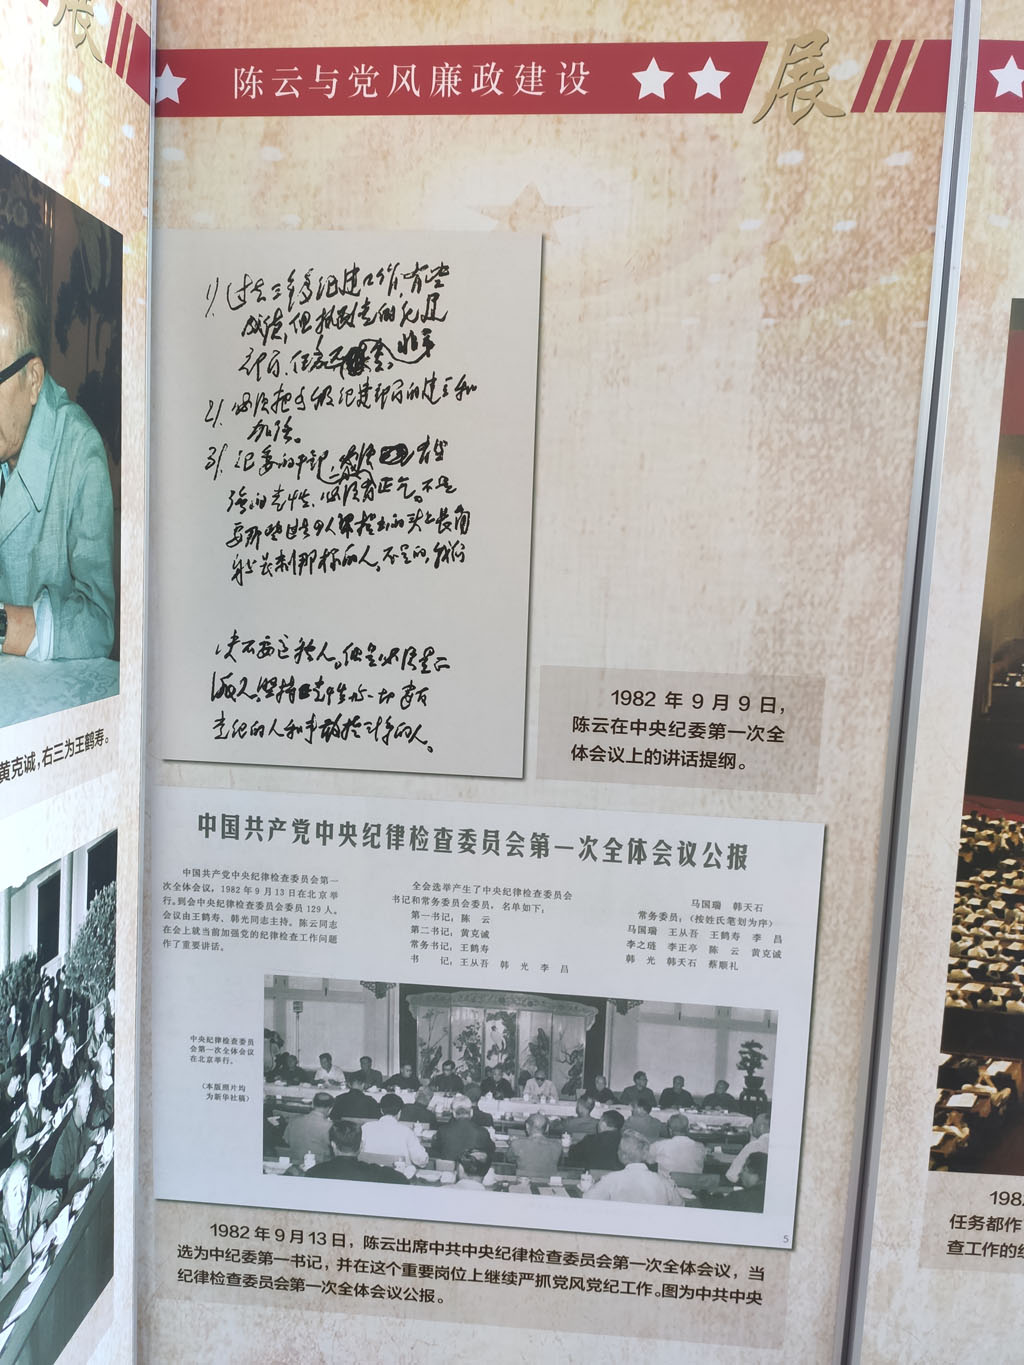 展
陈云与党风廉政建设
展
1). 过去三年多纪委工作,有些
成绩,但
2). 必须把各级纪委部门的建立和
加强。
3). 纪委的干部,
强的党性,必须有正气。不是
要那些
身上长刺那样的人。不是的,我们
决不要这种人。但是必须是
坚持党性,
党纪的人和事敢于斗争的人。
1982 年 9 月 9 日,
陈云在中央纪委第一次全
体会议上的讲话提纲。
黄克诚,右三为王鹤寿。
中国共产党中央纪律检查委员会第一次全体会议公报
中国共产党中央纪律检查委员会第一
次全体会议,1982年9月13日在北京举
行。到会中央纪律检查委员会委员129人。
会议由王鹤寿、韩光同志主持。陈云同志
在会上就当前加强党的纪律检查工作问题
作了重要讲话。
全会选举产生了中央纪律检查委员会
书记和常务委员会委员,名单如下:
第一书记:陈 云
第二书记:黄克诚
常务书记:王鹤寿
书 记:王从吾 韩 光 李 昌
马国瑞 韩天石
常务委员:(按姓氏笔划为序)
马国瑞 王从吾 王鹤寿 李 昌
李之琏 李正亭 陈 云 黄克诚
韩 光 韩天石 蔡顺礼
中央纪律检查委员
会第一次全体会议
在北京举行。
(本版照片均
为新华社稿)
5
1982 年 9 月 13 日,陈云出席中共中央纪律检查委员会第一次全体会议,当
选为中纪委第一书记,并在这个重要岗位上继续严抓党风党纪工作。图为中共中央
纪律检查委员会第一次全体会议公报。
198
任务都作
查工作的